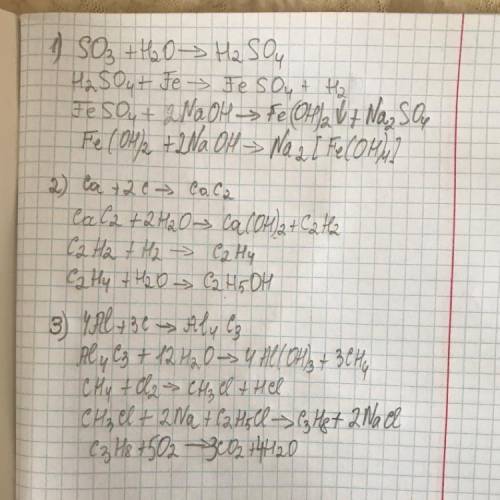 1) SO3 + H2O → H2SO4
H2SO4 + Fe → FeSO4 + H2
FeSO4 + 2NaOH → Fe(OH)2↓ + Na2SO4
Fe(OH)2 + 2NaOH → Na2[Fe(OH)4]
2) Ca + 2C → CaC2
CaC2 + 2H2O → Ca(OH)2 + C2H2
C2H2 + H2 → C2H4
C2H4 + H2O → C2H5OH
3) 4Al + 3C → Al4C3
Al4C3 + 12H2O → 4Al(OH)3 + 3CH4
CH4 + Cl2 → CH3Cl + HCl
CH3Cl + 2Na + C2H5Cl → C3H8 + 2NaCl
C3H8 + 5O2 → 3CO2 + 4H2O